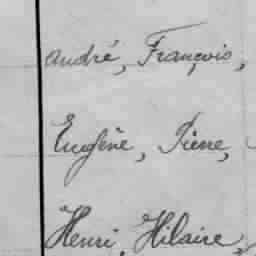 André, François,
Eugène, Pierre,
Henri, Hilaire,